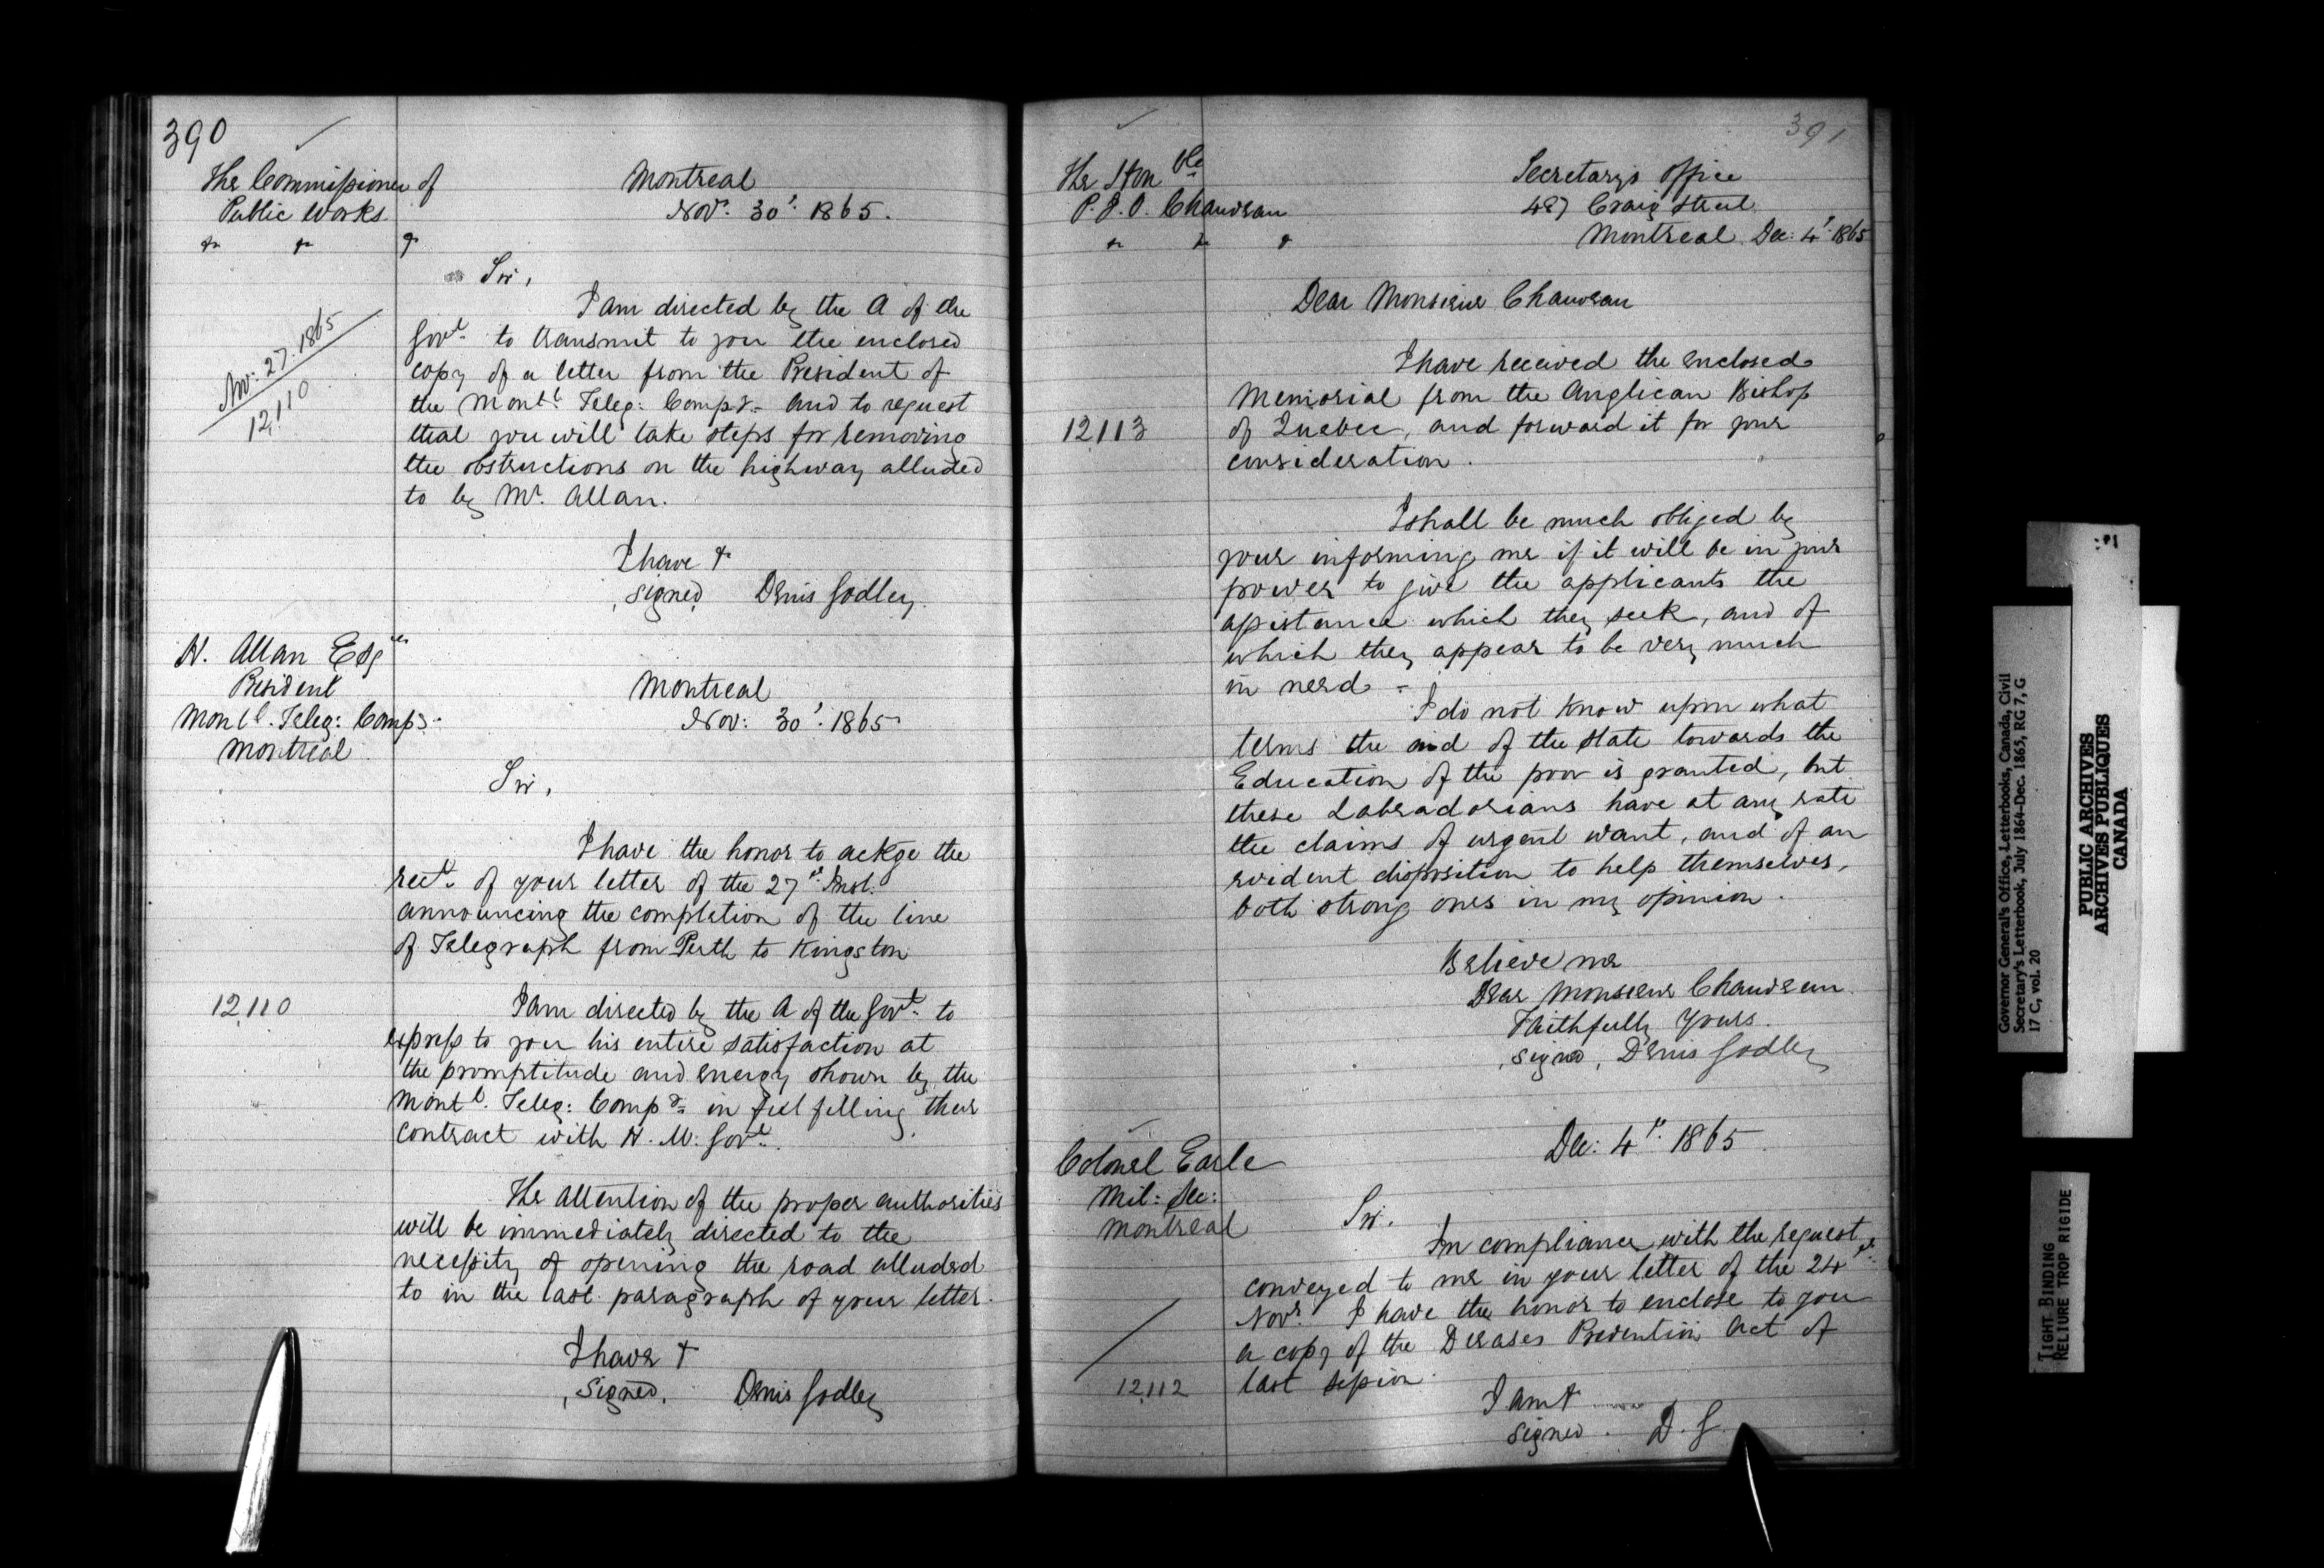 390
The Commissioner of
Public Works
&c &c &c
Montreal
Novr. 30th. 1865.
Sir,
Nov: 27. 1865
12,110
I am directed by the A of the
Govt. to transmit to you the enclosed
copy of a letter from the President of
the Montl. Teleg: Compy. and to request
that you will take steps for removing
the obstructions on the highway alluded
to by Mr. Allan.
I have &
signed Denis Godley.
H. Allan Esqre
President
Montl. Teleg: Compy.
Montreal
Montreal
Nov: 30th: 1865
Sir,
I have the honor to ackge the
rect. of your letter of the 27th. Inst.
announcing the completion of the line
of Telegraph from Perth to Kingston
12,110
I am directed by the A of the Govt. to
express to you his entire satisfaction at
the promptitude and energy shown by the
Montl. Teleg: Compy. in fulfilling their
contract with H. M. Govt.
The attention of the proper authorities
will be immediately directed to the
necessity of opening the road alluded
to in the last paragraph of your letter.
I have &
signed. Denis Godley
391
The Honble
P. J. O. Chauveau
&c &c &c
Secretary's Office
487 Craig Street
Montreal Dec: 4th. 1865
Dear Monsieur Chauveau
I have received the enclosed
Memorial from the Anglican Bishop
12113
of Quebec, and forward it for your
consideration.
I shall be much obliged by
your informing me if it will be in your
power to give the applicants the
assistance which they seek, and of
which they appear to be very much
in need -
I do not know upon what
terms the aid of the state towards the
Education of the poor is granted, but
these Labradorians have at any rate
the claims of urgent want, and of an
evident disposition to help themselves,
both strong ones in my opinion.
Believe me
Dear Monsieur Chauveau
Faithfully Yours.
signed, Denis Godley
Colonel Earle
Mil: Sec:
Montreal
Dec: 4th. 1865
Sir.
In compliance with the request
conveyed to me in your letter of the 24th.
Novr. I have the honor to enclose to you
a copy of the Diseases Prevention Act of
12,112
last session.
I am &
signed. D. G.
Governor General's Office, Letterbooks, Canada, Civil
Secretary's Letterbook, July 1864-Dec. 1865, RG 7, G
17 C, vol. 20
PUBLIC ARCHIVES
ARCHIVES PUBLIQUES
CANADA
TIGHT BINDING
RELIURE TROP RIGIDE